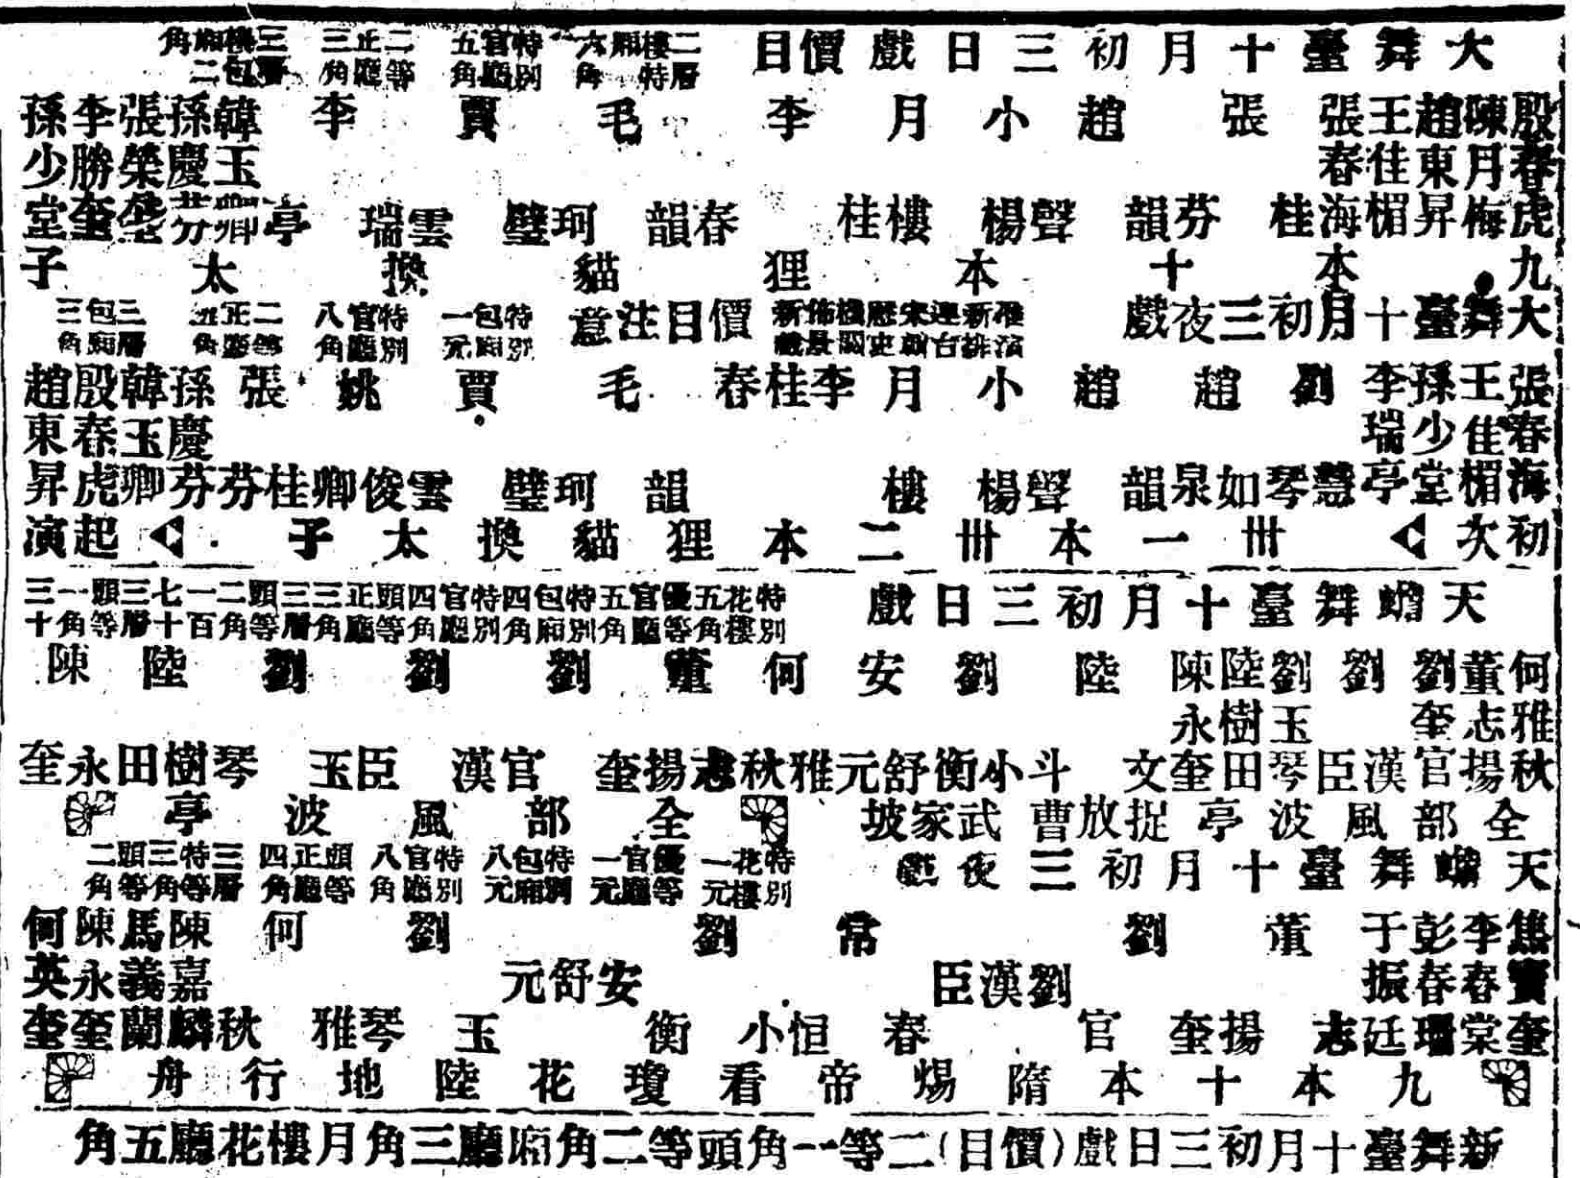 大舞臺十月初三日戲價目 二層樓特廂六角 特別官廳五角 二等正廳三角 三層樓包廂二角
殷春虎 陳月梅 趙東昇 王佳楣 張春海 張桂芬 趙韻聲 小楊月樓 李桂春 毛韻珂 賈璧雲 李瑞亭 韓玉卿 孫慶芬 張榮奎 李勝奎 孫少堂
九本 十本狸貓換太子
大舞臺十月初三夜戲 准演新排連台宋朝歷史機關佈景新戲 價目注意 特別包廂一元 特別官廳八角 二等正廳五角 三層包廂三角
張春海 王佳楣 孫少堂 李瑞亭 劉慧琴 趙如泉 趙韻聲 小楊月樓 李桂春 毛韻珂 賈璧雲 姚俊卿 張桂芬 孫慶芬 韓玉卿 殷春虎 趙東昇
初次 卅一本卅二本狸貓換太子 起演
天蟾舞臺十月初三日戲 特別花樓五角 優等官廳五角 特別包廂四角 特別官廳四角 頭等正廳三角 三層頭等二角一百七十 三層頭等一角三十
何雅秋 董志揚 劉奎官 劉漢臣 劉玉琴 陸樹田 陳永奎 陸文斗 劉小衡 安舒元 何雅秋 董志揚 劉奎官 劉漢臣 劉玉琴 陸樹田 陳永奎
全部風波亭 捉放曹 武家坡 全部風波亭
天蟾舞臺十月初三夜戲 特別花樓一元 優等官廳一元 特別包廂八元 特別官廳八角 頭等正廳四角 三層特等三角 頭等二角
焦寶奎 李春棠 彭春珊 于振廷 董志揚 劉奎官 劉漢臣 常春恒 劉小衡 安舒元 劉玉琴 何雅秋 陳嘉麟 馬義蘭 陳永奎 何英奎
九本十本隋煬帝看瓊花陸地行舟
新舞臺十月初三日戲(價目)二等一角頭等二角廂廳三角月樓花廳五角